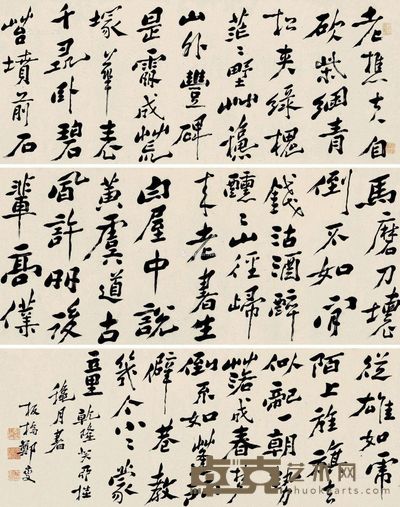 老樵夫自
砍柴綑青
松夾綠槐
茫〻野艸穐
山外豐碑
是處成荒
塚華表
千尋臥碧
苔墳前石
馬磨刀壞
倒不如閒
錢沽酒醉
醺〻山徑歸
來老書生
白屋中說
黃虞道古
風許多後
輩高僕
從雄如虎
陌上旌旗去
似龍一朝勢
落成春夢
倒不如蓬門
僻巷教
幾个小〻蒙
童 乾隆癸亥桂
穐月書
板橋鄭燮
卓克艺术网